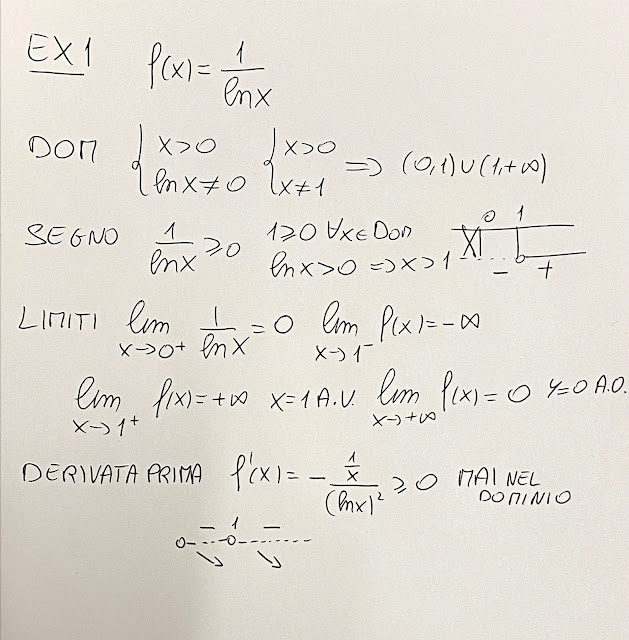 EX1 f(x) = 1/lnx
DOM { x>0 lnx≠0 { x>0 x≠1 => (0,1)∪(1,+∞)
SEGNO 1/lnx ≥0 1≥0 ∀x∈DOM lnx>0 => x>1 0 1 - +
LIMITI lim x→0+ 1/lnx = 0 lim x→1- f(x) = -∞
lim x→1+ f(x) = +∞ x=1 A.V. lim x→+∞ f(x) = 0 y=0 A.O.
DERIVATA PRIMA f'(x) = - (1/x)/(lnx)² ≥0 MAI NEL DOMINIO
- 1 -